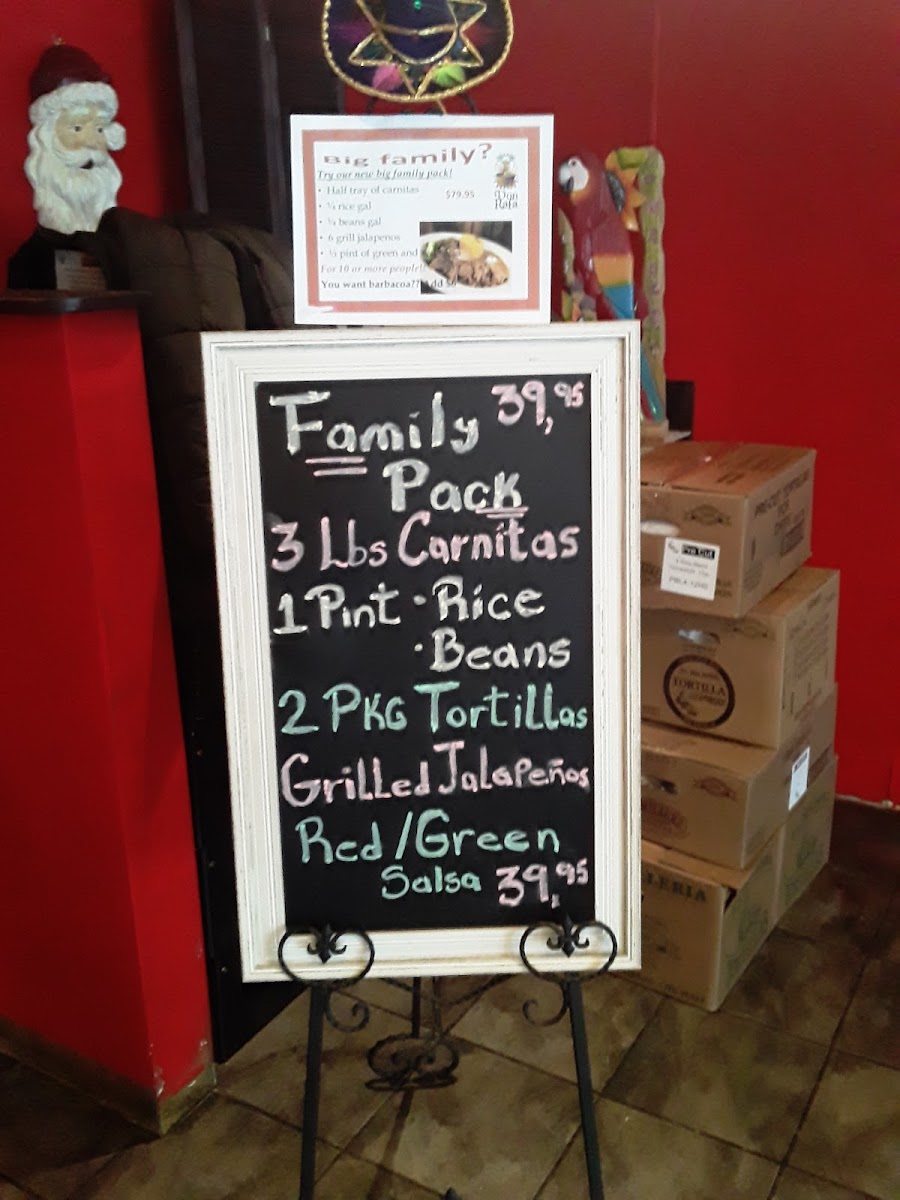 Big family?
Try our new big family pack!
• Half tray of carnitas
$79.95
Don
Rafa
rice gal
beans gal
• 6 grill jalapenos
pint of green and
For 10 or more people!!
You want barbacoa?? Add $6
Family 39,95
Pack
3 Lbs Carnitas
1 Pint • Rice
• Beans
2 PKG Tortillas
Grilled Jalapeños
Red/Green
Salsa 39,95
Pro Cut
TORTILLA
LERIA